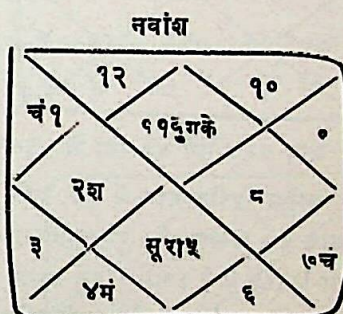 नवांश
१२
१०
चं१
११दुगके
०
२श
८
३
सूरा५
७चं
४मं
६